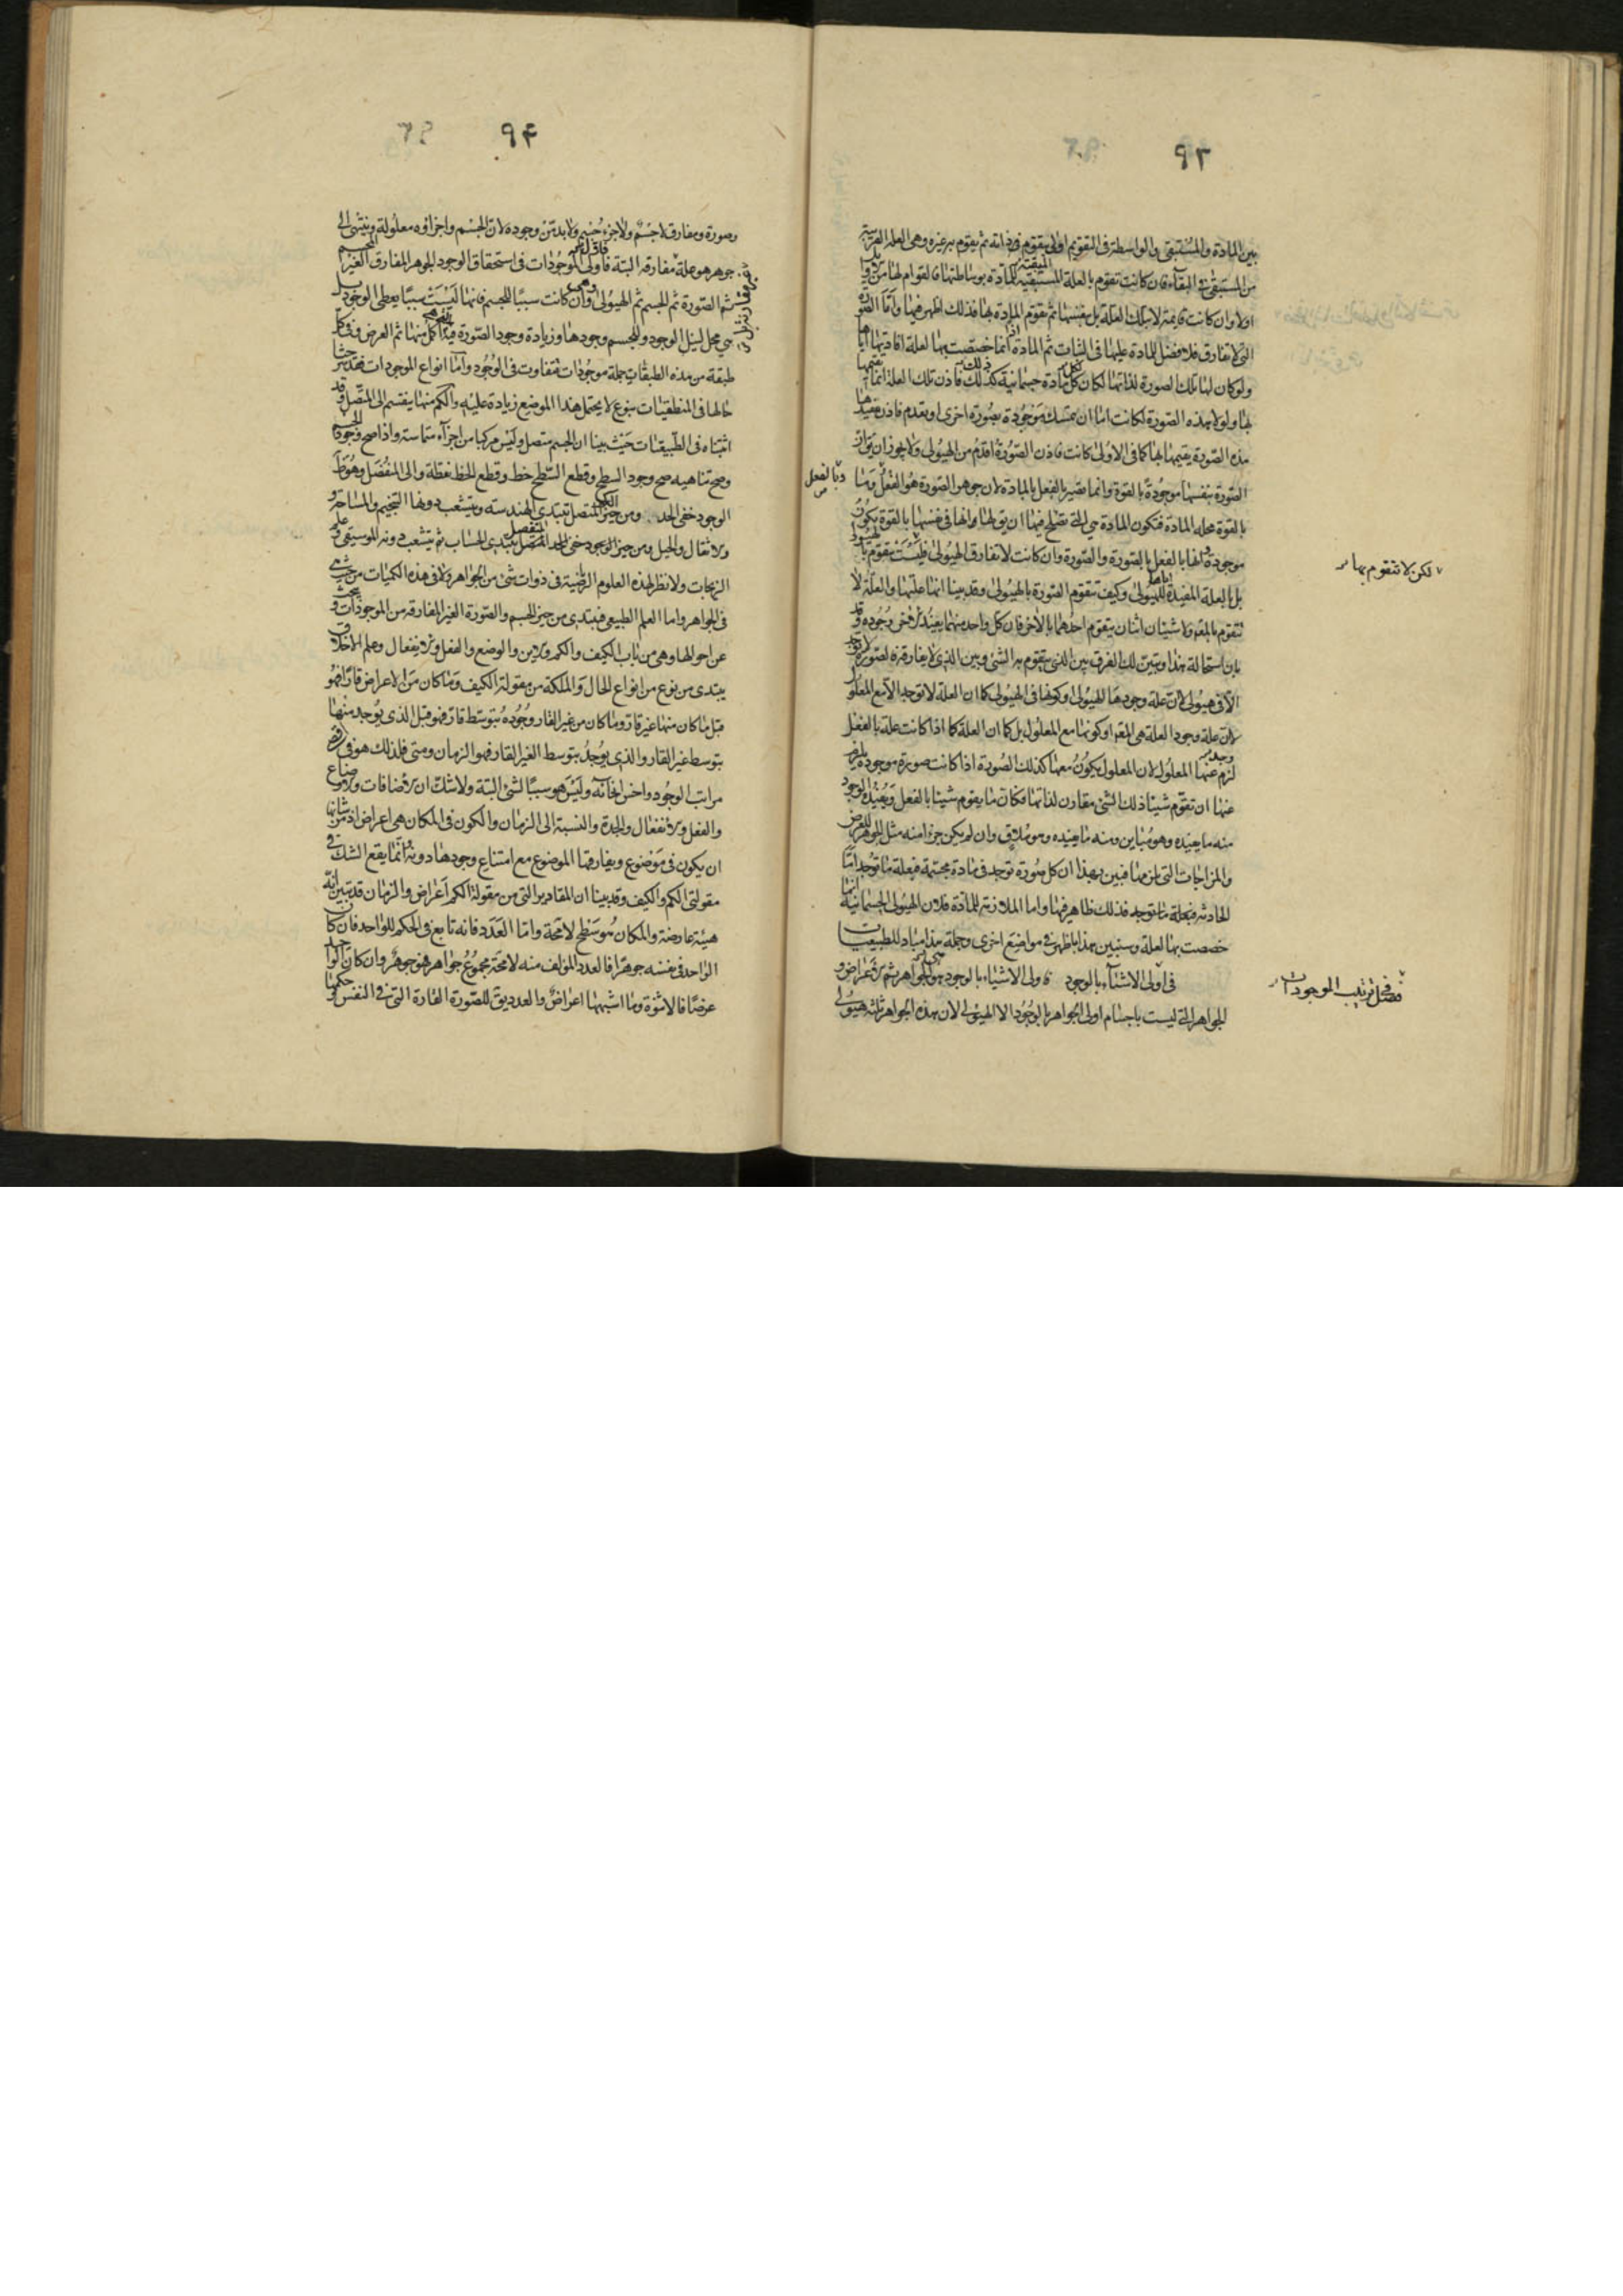 ٩٣
بين المادة والمستبقى والواسطة فى التقويم اولى يتقوم فى ذاته ثم يقوم به غيره وهى العلة القريبة
من المستبقى فى البقاء فان كانت تقوم بالعلة المستبقية للمادة بوساطتها فالقوام لها من
اولا وان كانت قايمة لا بتلك العلة بل بنفسها ثم تقوم المادة بها فذلك اظهر فيها واما الصورة
التى لا تفارق فلا فضل للمادة عليها فى الثبات ثم المادة انما خصصت بها لعلة افادتها اياها
ولو كان لها تلك الصورة لذاتها لكان لكل مادة جسمانية ذلك فاذن تلك العلة انما يقيمها
بها ولولا هذه الصورة لكانت اما ان تمسك موجودة بصورة اخرى او تعدم فاذن مفيدها
هذه الصورة يقيمها بها كما فى الاولى كانت فاذن الصورة اقدم من الهيولى ولا يجوز ان يقال ان
الصورة بنفسها موجودة بالقوة وانما تصير بالفعل بالمادة لان جوهر الصورة هو الفعل وما
وبالفعل
بالقوة محله المادة فتكون المادة هى التى تصلح فيها ان يق لها انها فى نفسها بالقوة يكون
موجودة وانها بالفعل بالصورة والصورة وان كانت لا تفارق الهيولى فليست تتقوم بالهيولى
لكن لا تتقوم بها
بل بالعلة المفيدة اياها للهيولى وكيف تتقوم الصورة بالهيولى وقد بينا انها علتها والعلة لا
تتقوم بالمعلول ولا شيئان اثنان يتقوم احدهما بالاخر فان كل واحد منهما يفيد الاخر وجوده وقد
بان استحالة هذا وتبين لك الفرق بين الذى يتقوم به الشئ وبين الذى لا يفارقه فالصورة لا توجد
الا فى هيولى لان علة وجودها للهيولى او كونها فى الهيولى كما ان العلة لا توجد الا مع المعلول
لان علة وجود العلة هى المعلول او كونها مع المعلول بل كما ان العلة كما اذا كانت علة بالفعل
لزم عنها المعلول لان المعلول يكون معها كذلك الصورة اذا كانت صورة موجودة يلزم
عنها ان تقوم شيئا ذلك الشئ مقارن لذاتها فكان ما يقوم شيئا بالفعل ويفيده الوجود
منه ما يفيده وهو مباين ومنه ما يفيده وهو ملاق وان لم يكن جزءا منه مثل الجوهر للعرض
والمزاجات التى تلزمها فبين بهذا ان كل صورة توجد فى مادة مجسمة فبعلة ما توجد اما
الحادثة فبعلة ما توجد فذلك ظاهر فيها واما الملازمة للمادة فلان الهيولى الجسمانية انما
خصصت بها لعلة وسنبين هذا باظهر فى مواضع اخرى وجملة هذا مباد للطبيعيات
فصل فى ترتيب الموجودات
فى اولى الاشياء بالوجود فاولى الاشياء بالوجود هى الجواهر ثم الاعراض و
الجواهر التى ليست باجسام اولى الجواهر بالوجود الا الهيولى لان هذه الجواهر ثلثه هيولى
٩٤
وصورة ومفارق لا جسم ولا جزء جسم ولا بد من وجوده لان الجسم واجزاؤه معلولة وينتهى الى
جوهر هو علة مفارقه البتة فاولى الموجودات فى استحقاق الوجود الجوهر المفارق الغير المجسم
ثم الصورة ثم الجسم ثم الهيولى وهى وان كانت سببا للجسم فانها ليست بسبب يعطى الوجود بل
هى محل لنيل الوجود وللجسم وجودها وزيادة وجود الصورة فيه التى هى اكمل منها ثم العرض وفى كل
طبقة من هذه الطبقات جملة موجودات تتفاوت فى الوجود واما انواع الموجودات فقد شرحنا
حالها فى المنطقيات بنوع لا يحتمل هذا الموضع زيادة عليه والكم منها ينقسم الى المتصل وقد
اثبتناه فى الطبيعيات حيث بينا ان الجسم متصل وليس مركبا من اجزاء متماسة واذا صح وجود الجسم
وصح تناهيه صح وجود السطح وقطع السطح خط وقطع الخط نقطة والى المنفصل وهو ظاهر
الوجود خفى الحد ومن حيز الكم المتصل تبتدى الهندسة ويتشعب دونها التنجيم والمساحة و
الاثقال والحيل ومن حيز المنفصل يبتدى الحساب ثم يتشعب دونه الموسيقى وعلم
الزيجات ولا نظر لهذه العلوم الرياضية فى ذوات شئ من الجواهر ولا فى هذه الكميات من حيث هى
فى الجواهر واما العلم الطبيعى فيبتدى من حيز الجسم والصورة الغير المفارقة من الموجودات ويبحث
عن احوالها وهى من باب الكيف والكم والاين والوضع والفعل والانفعال وعلم الاخلاق
يبتدى من نوع من انواع الحال والملكة من مقولة الكيف وما كان من الاعراض قارا فهو
قبل ما كان منها غير قار وما كان من غير القار وجوده بتوسط قار فهو قبل الذى يوجد منها
بتوسط غير القار والذى يوجد بتوسط الغير القار فهو الزمان ومتى فلذلك هو فى اقصى
مراتب الوجود واخس انحائه وليس هو سببا لشئ البتة ولا شك ان الاضافات والاوضاع
والفعل والانفعال والجدة والنسبة الى الزمان والكون فى المكان هى اعراض اذ من شانها
ان يكون فى موضوع ويفارقها الموضوع مع امتناع وجودها دونه انما يقع الشك فى
مقولتى الكم والكيف وقد بينا ان المقادير التى من مقولة الكم اعراض والزمان قد تبين انه
هيئة عارضة والمكان هو سطح لا محة واما العدد فانه تابع فى الحكم للواحد فان كان
الواحد فى نفسه جوهرا فالعدد المؤلف منه لا محة مجموع جواهر هو جوهر وان كان الواحد
عرضا فالاثنوة وما اشبهها اعراض والعدد يق للصورة القارة التى فى النفس وحكمها